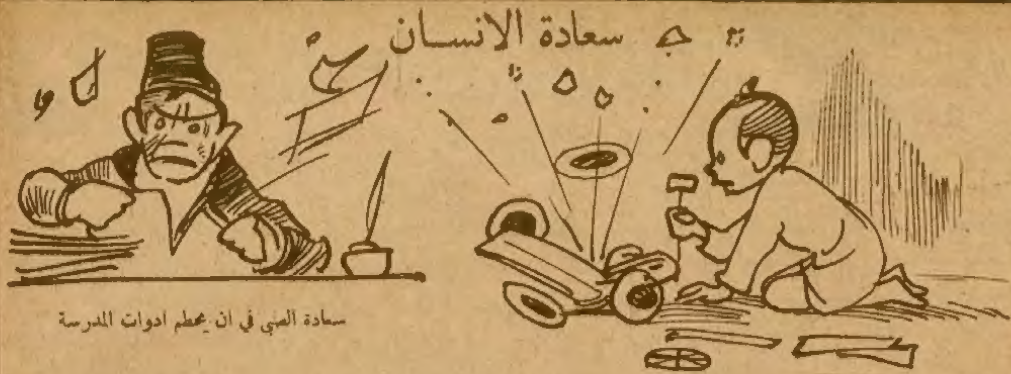 سعادة الانسان
سعادة الصبي في ان يحطم ادوات المدرسة